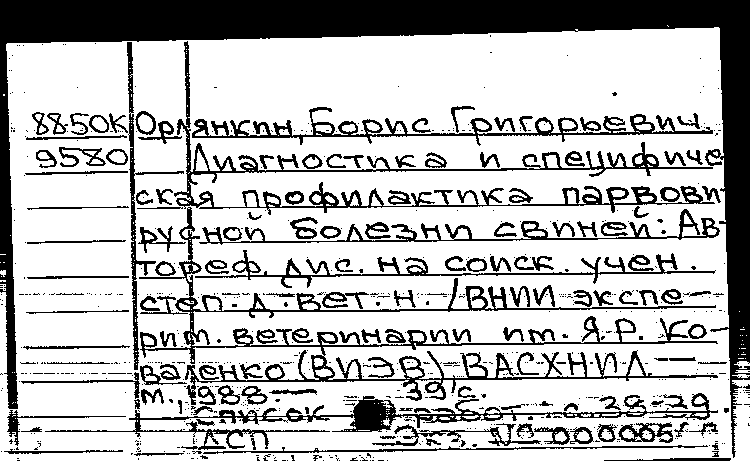 88-50К Орлянкин, Борис Григорьевич.
9580 Диагностика и специфиче-
ская профилактика парвови-
русной болезни свиней: Ав-
тореф. дис. на соиск. учен.
степ. д. вет. н. / ВНИИ экспе-
рим. ветеринарии им. Я.Р. Ко-
валенко (ВИЭВ) ВАСХНИЛ. —
М., 1988. — 39 с.
Список работ: с. 38-39.
ДСП. Экз. № 000005